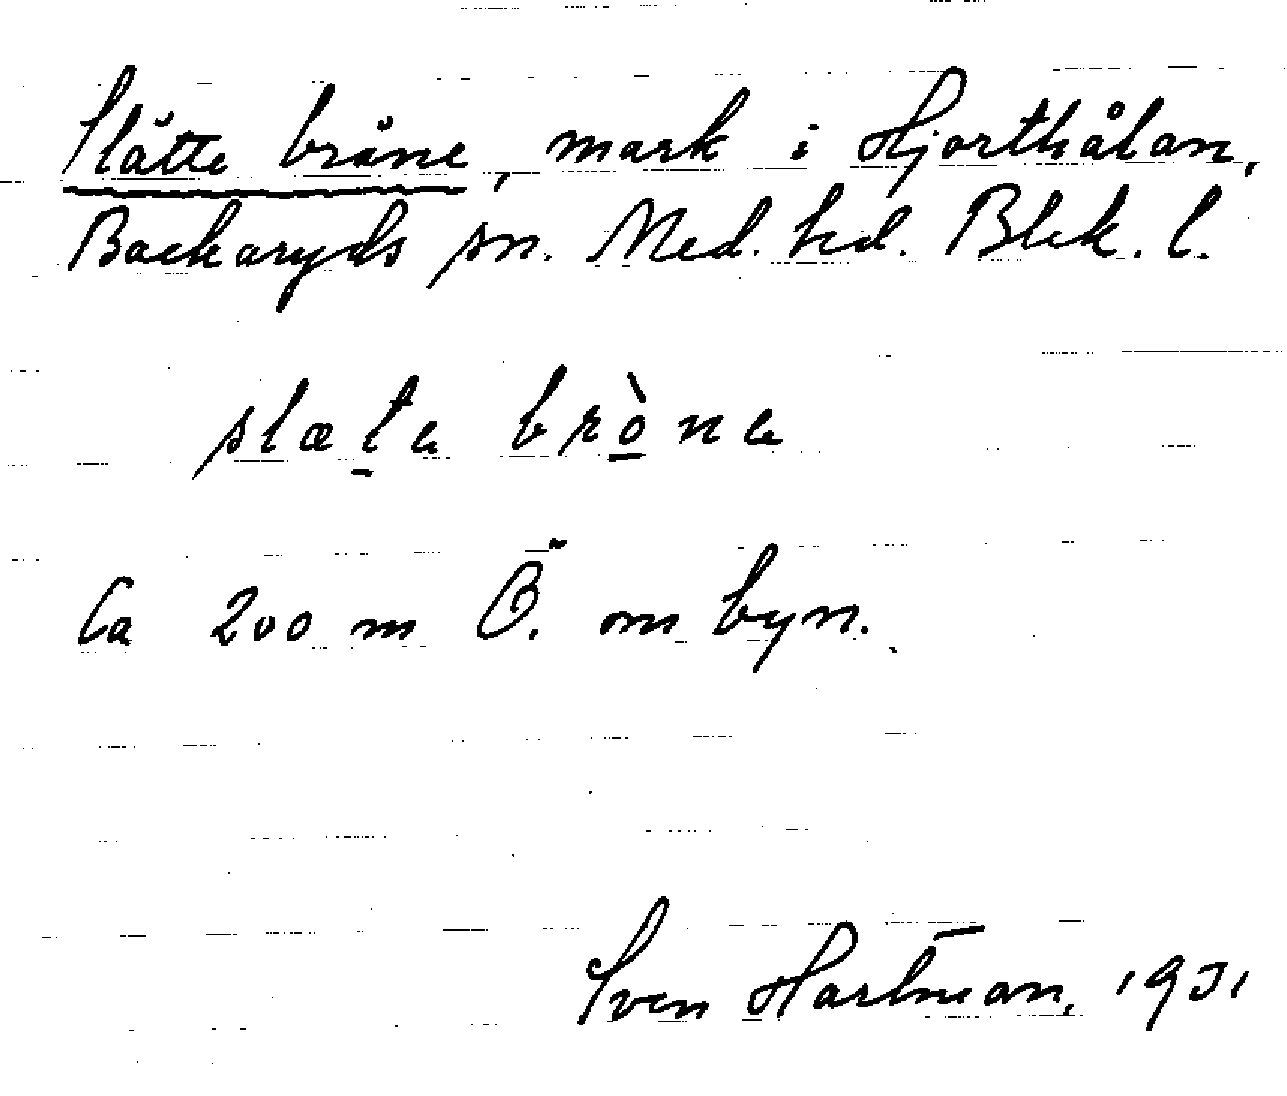 Slätte bråne, mark i Hjorthålan,
Backaryds sn. Med. hd. Blek. l.
slæta bròna
Ca 200 m Ö. om byn.
Sven Hartman, 1931